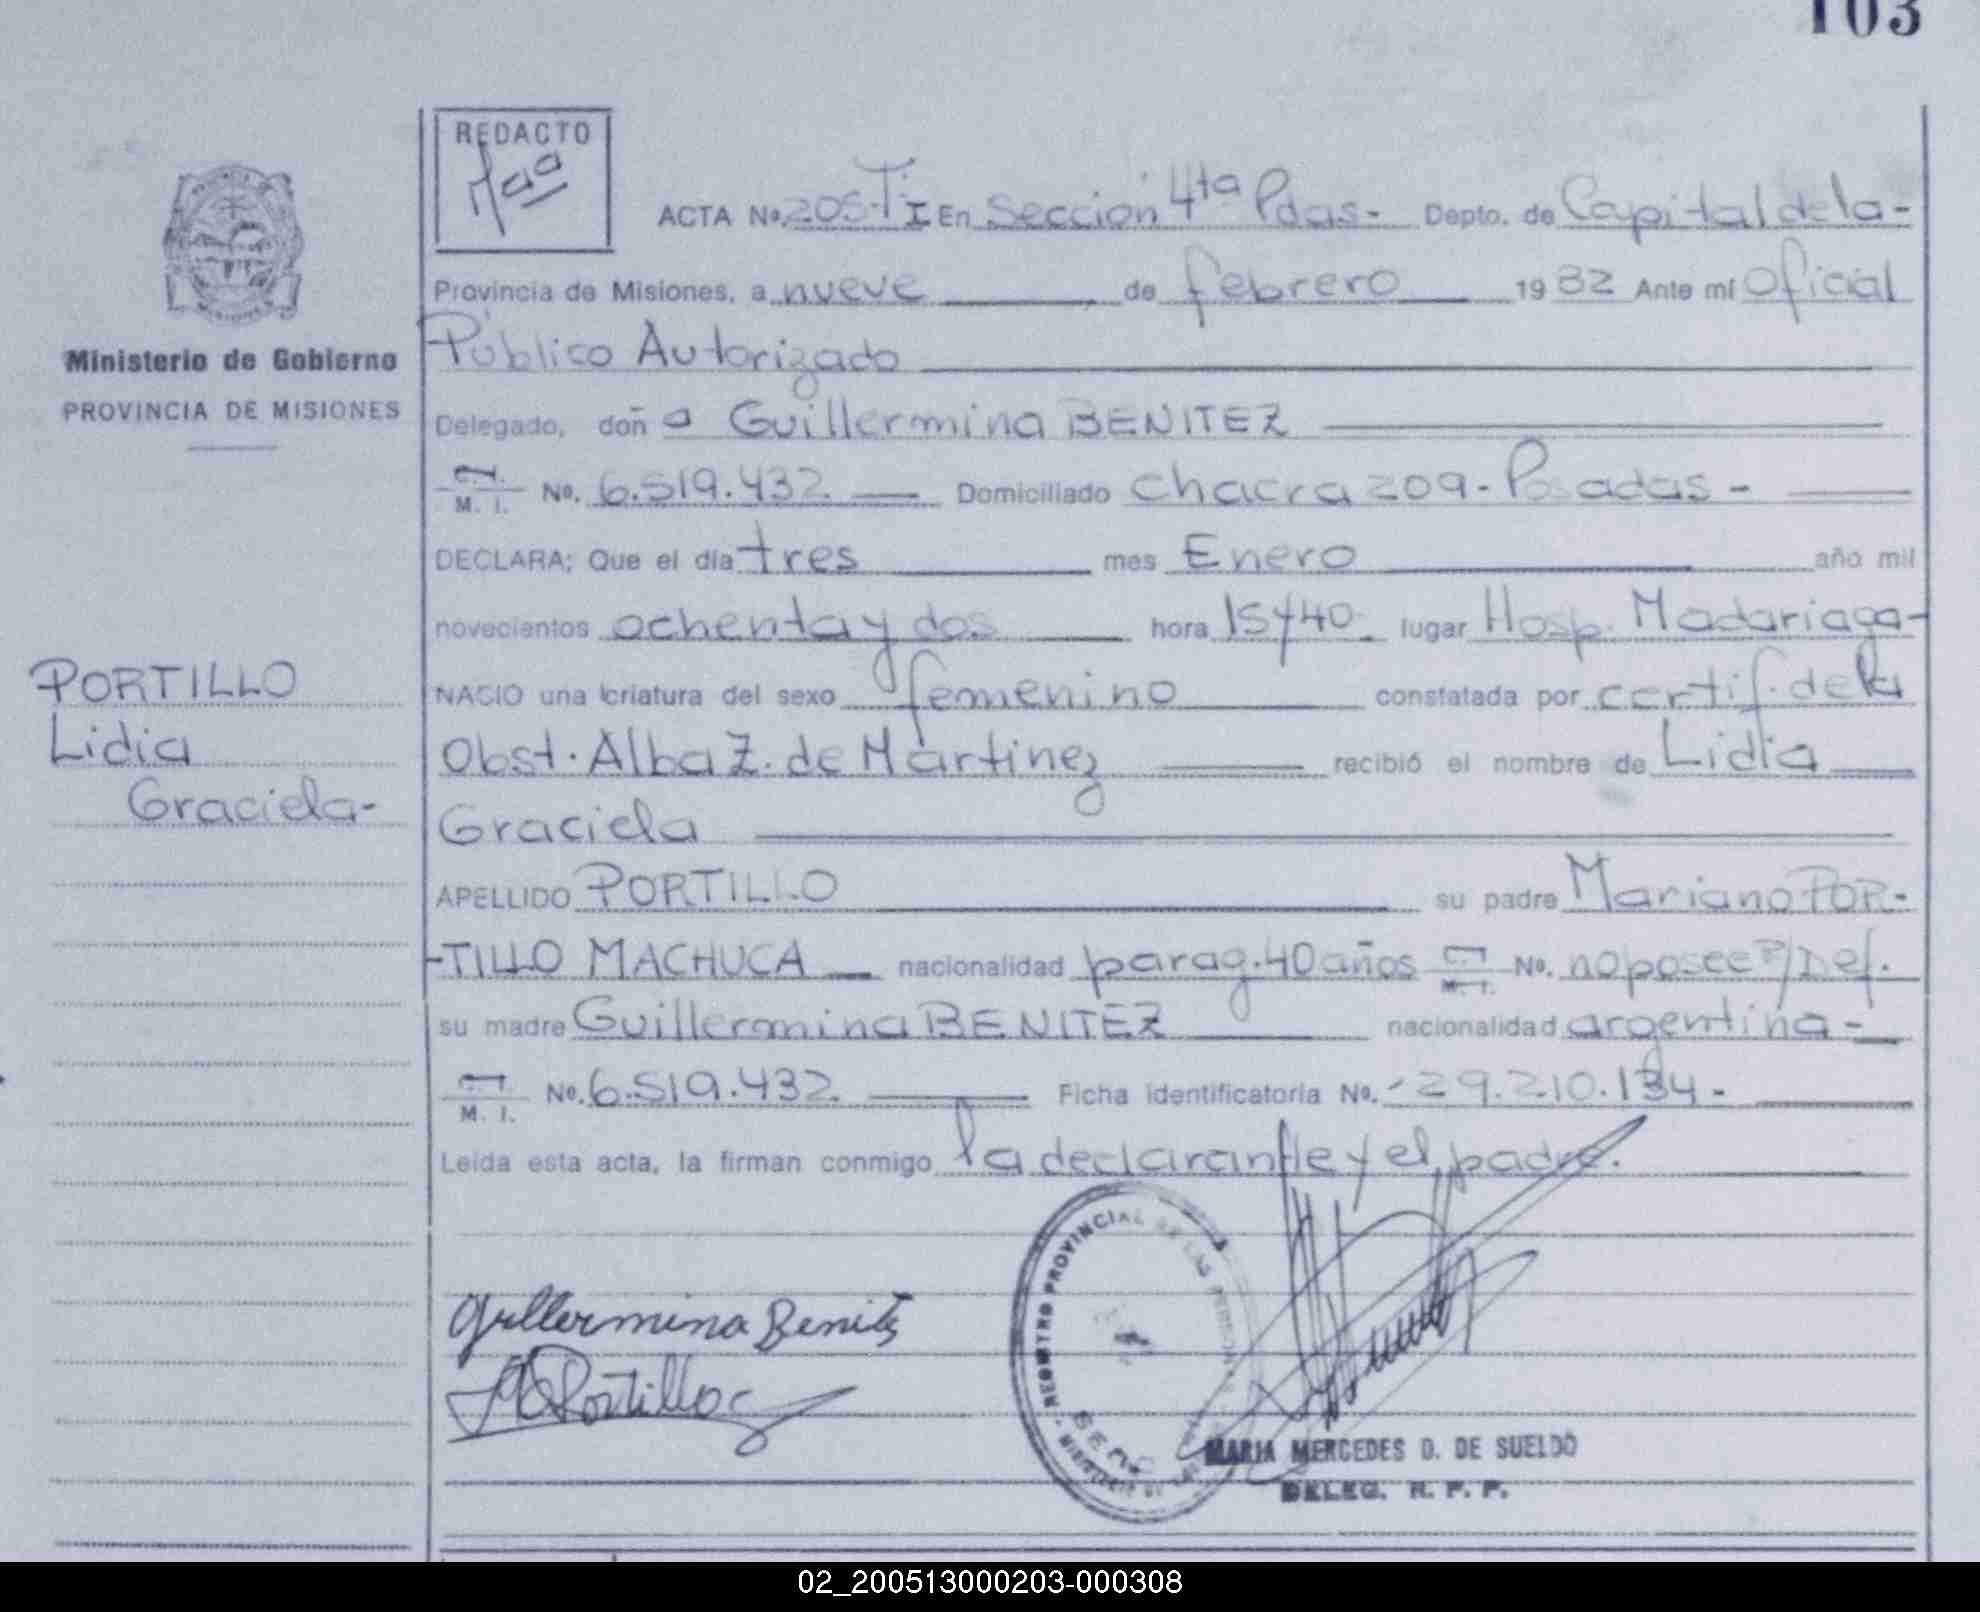 103
REDACTO
ACTA No. 205-TI En Sección 4ta Pdas- Depto. de Capital de la-
Provincia de Misiones, a nueve de febrero 1982 Ante mí Oficial
Ministerio de Gobierno
PROVINCIA DE MISIONES
Público Autorizado
Delegado, doña Guillermina BENITEZ
M. I. No. 6.519.432 Domiciliado Chacra 209- Posadas-
DECLARA; Que el día tres mes Enero año mil
novecientos ochenta y dos hora 15y40 lugar Hosp. Madariaga-
PORTILLO
Lidia
Graciela-
NACIO una criatura del sexo femenino constatada por certif. de la
Obst. Alba Z. de Martinez recibió el nombre de Lidia
Graciela
APELLIDO PORTILLO su padre Mariano POR-
-TILLO MACHUCA nacionalidad parag. 40 años M. I. No. no posee P/Def.
su madre Guillermina BENITEZ nacionalidad argentina-
M. I. No. 6.519.432 Ficha identificatoria No. -29.210.134-
Leída esta acta, la firman conmigo la declarante y el padre.
Guillermina Benitez
Portillo
REGISTRO PROVINCIAL DE LAS PERSONAS
MARIA MERCEDES D. DE SUELDO
DELEG. R. P. P.
02_200513000203-000308